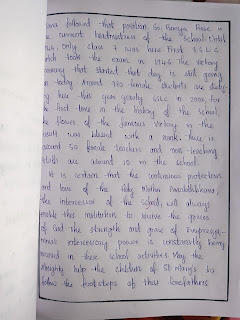 followed that position. Sri Ramya Rose is
the current headmistress of the school. Until
only class 7 was here. First S.S.L.C
took the exam in 1946. The victory
that started that day is still going
on today. Around 980 female students are studying
here. This year greatly SSLC in 2005, For
the first time in the history of the school,
flower of the famous victory in the
was blessed with a rank. There is
around 50 female teachers and non-teaching
are around 15 in the school.
It is certain that the continuous protection
and love of the Holy Mother
the intercession of the school, will always
enable this institution to receive the graces
of God. The strength and grace of
intercessory power is constantly being
received in these school activities. May the
Almighty help the children of St. Mary's to
follow the footsteps of their forefathers